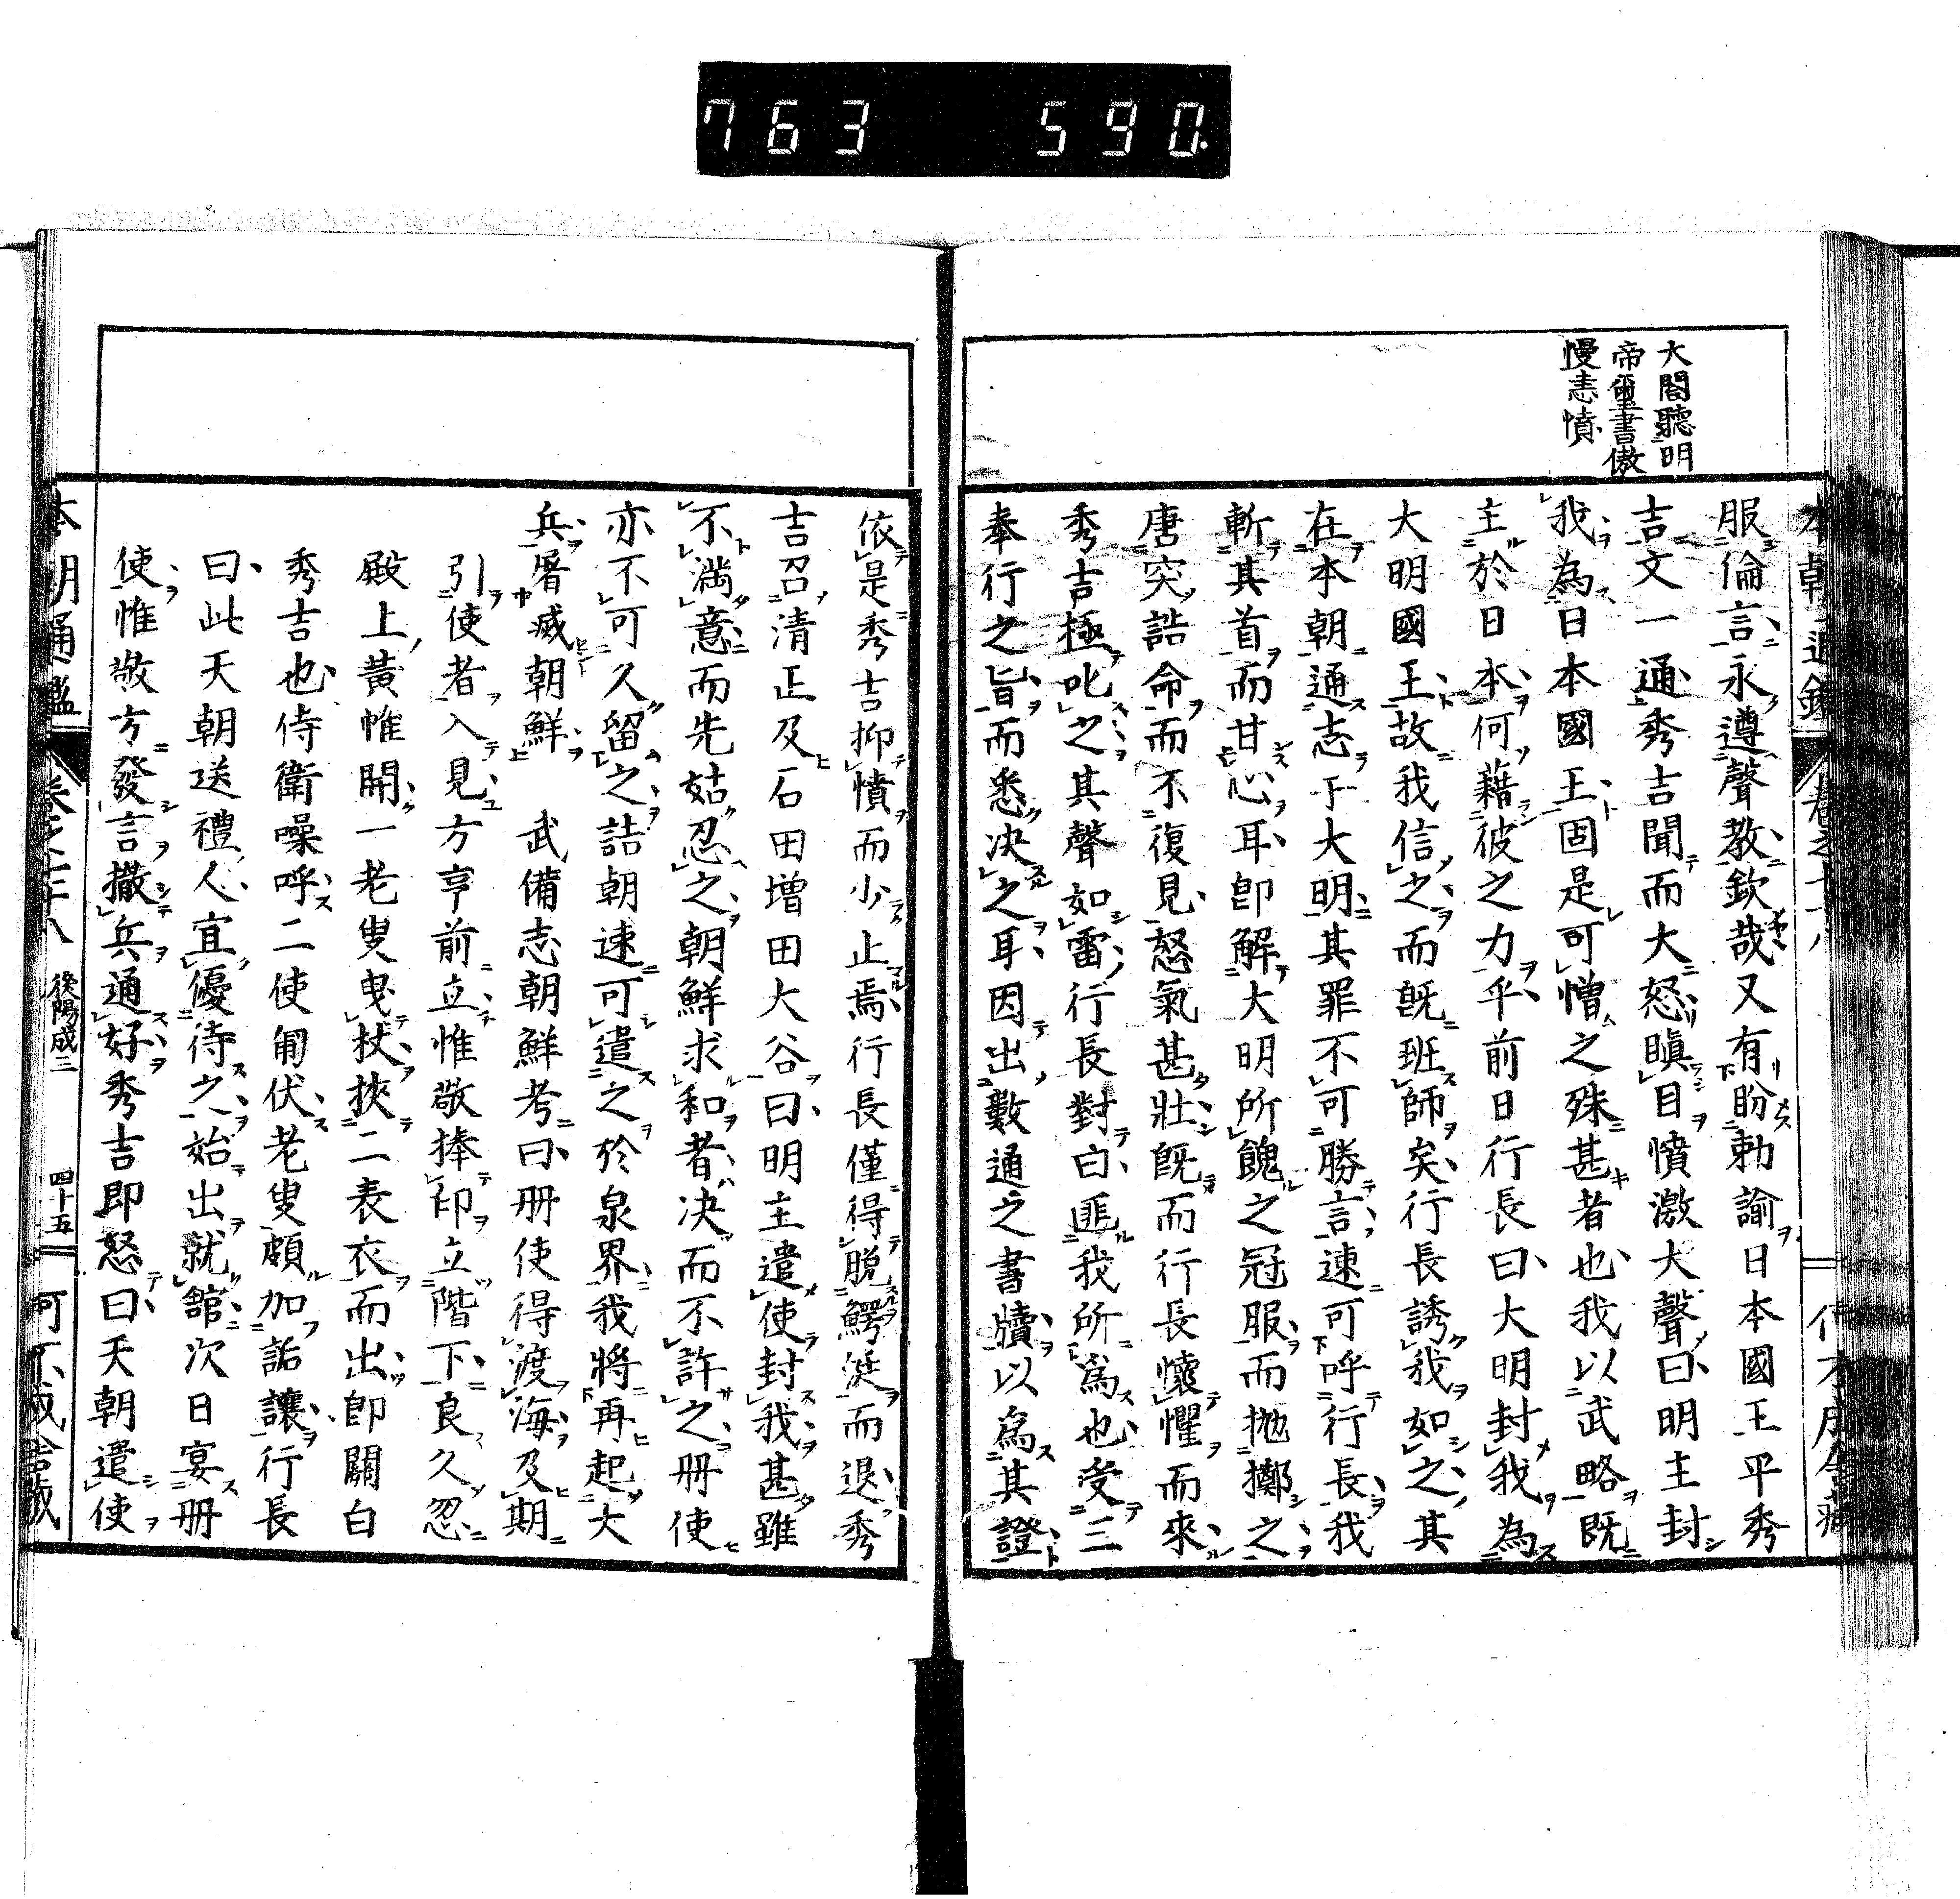 763 590.
大閤聽明
帝璽書傲
慢恚憤
服倫言永遵聲教欽哉又有盼勅諭日本國王平秀
吉文一通秀吉聞而大怒瞋目憤激大聲曰明主封
我為日本國王固是可憎之殊甚者也我以武略既
主於日本何藉彼之力乎前日行長曰大明封我為
大明國王故我信之而既班師矣行長誘我如之其
在本朝通志于大明其罪不可勝言速可呼行長我
斬其首而甘心耳卽解大明所餽之冠服而抛擲之
唐突誥命而不復見怒氣甚壯既而行長懷懼而來
秀吉極叱之其聲如雷行長對白匪我所為也受三
奉行之旨而悉决之耳因出數通之書牘以為其證
依是秀吉抑憤而少止焉行長僅得脫鰐涎而退秀
吉召清正及石田增田大谷曰明主遣使封我甚雖
不滿意而先姑忍之朝鮮求和者决而不許之冊使
亦不可久留之詰朝速可遣之於泉界我將再起大
兵屠滅朝鮮 武備志朝鮮考曰冊使得渡海及期
引使者入見方亨前立惟敬捧印立階下良久忽
殿上黃帷開一老叟曳杖挾二表衣而出卽關白
秀吉也侍衛噪呼二使匍伏老叟頗加詬讓行長
曰此天朝送禮人宜優待之始出就舘次日宴冊
使惟敬方發言撒兵通好秀吉即怒曰天朝遣使
本朝通鑑 卷之七十八 後陽成三 四十五